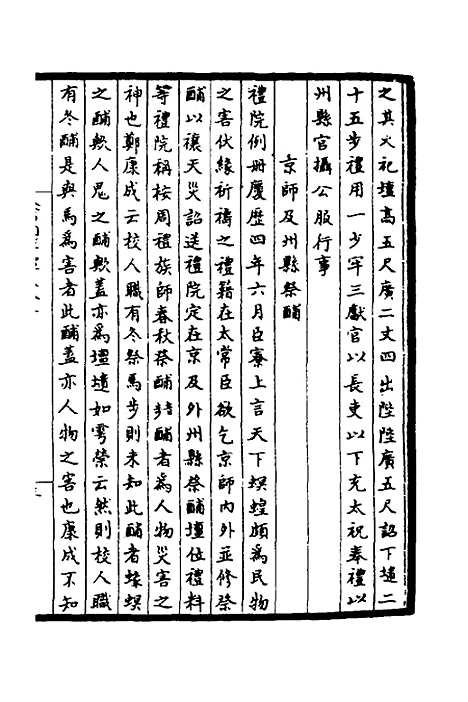 之其火祀壇高五尺廣二丈四出陛陛廣五尺詔下壝二
十五步禮用一少牢三獻官以長吏以下充太祝奉禮以
州縣官攝公服行事
京師及州縣祭酺
禮院例冊慶歷四年六月臣寮上言天下螟蝗頗為民物
之害伏緣祈禱之禮籍在太常臣欲乞京師內外並修祭
酺以禳天災詔送禮院定在京及外州縣祭酺壇位禮料
等禮院稱按周禮族師春秋祭酺酺者為人物災害之
神也鄭康成云校人職有冬祭馬步則未知此酺者蝝螟
之酺歟人鬼之酺歟蓋亦為壇壝如雩禜云然則校人職
有冬酺是與馬為害者此酺蓋亦人物之害也康成不知